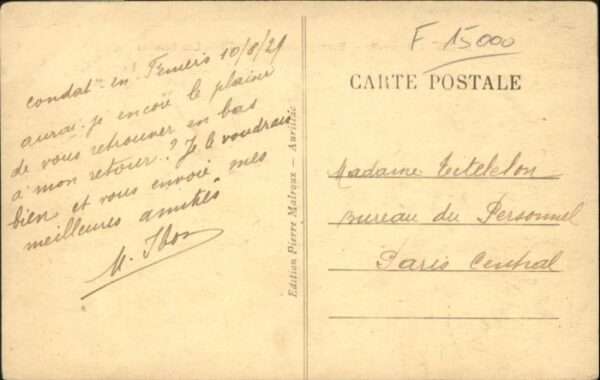 Condat-en-Feniers 10/8/21
aurai-je encore le plaisir
de vous retrouver en bas
à mon retour? Je le voudrais
bien et vous envoie mes
meilleures amitiés
Edition Pierre Malroux - Aurillac
F 15000
CARTE POSTALE
Madame
Bureau du Personnel
Paris Central